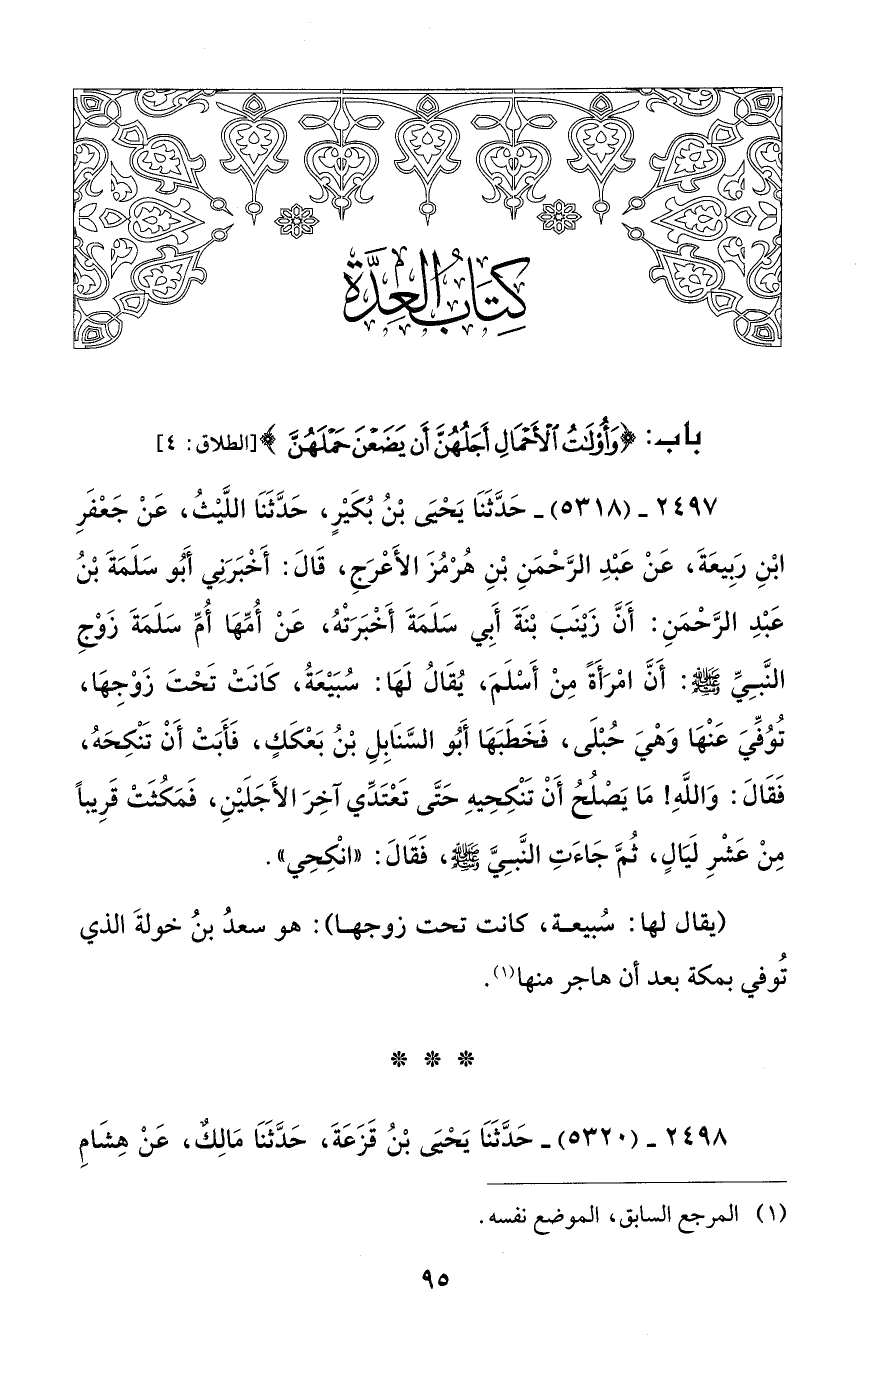 كِتَابُ العِدَّةِ
باب: ﴿وَأُوْلَٰتُ ٱلْأَحْمَالِ أَجَلُهُنَّ أَن يَضَعْنَ حَمْلَهُنَّ﴾ [الطلاق: ٤]
٢٤٩٧ ـ (٥٣١٨) ـ حَدَّثَنَا يَحْيَى بْنُ بُكَيْرٍ، حَدَّثَنَا اللَّيْثُ، عَنْ جَعْفَرِ
ابْنِ رَبِيعَةَ، عَنْ عَبْدِ الرَّحْمَنِ بْنِ هُرْمُزَ الأَعْرَجِ، قَالَ: أَخْبَرَنِي أَبُو سَلَمَةَ بْنُ
عَبْدِ الرَّحْمَنِ: أَنَّ زَيْنَبَ بْنَةَ أَبِي سَلَمَةَ أَخْبَرَتْهُ، عَنْ أُمِّهَا أُمِّ سَلَمَةَ زَوْجِ
النَّبِيِّ ﷺ: أَنَّ امْرَأَةً مِنْ أَسْلَمَ، يُقَالُ لَهَا: سُبَيْعَةُ، كَانَتْ تَحْتَ زَوْجِهَا،
تُوُفِّيَ عَنْهَا وَهْيَ حُبْلَى، فَخَطَبَهَا أَبُو السَّنَابِلِ بْنُ بَعْكَكٍ، فَأَبَتْ أَنْ تَنْكِحَهُ،
فَقَالَ: وَاللَّهِ! مَا يَصْلُحُ أَنْ تَنْكِحِيهِ حَتَّى تَعْتَدِّي آخِرَ الأَجَلَيْنِ، فَمَكُثَتْ قَرِيباً
مِنْ عَشْرِ لَيَالٍ، ثُمَّ جَاءَتِ النَّبِيَّ ﷺ، فَقَالَ: «انْكِحِي».
(يقال لها: سُبيعة، كانت تحت زوجها): هو سعدُ بنُ خولةَ الذي
تُوفي بمكة بعد أن هاجر منها(١).
* * *
٢٤٩٨ ـ (٥٣٢٠) ـ حَدَّثَنَا يَحْيَى بْنُ قَزَعَةَ، حَدَّثَنَا مَالِكٌ، عَنْ هِشَامِ
(١) المرجع السابق، الموضع نفسه.
٩٥